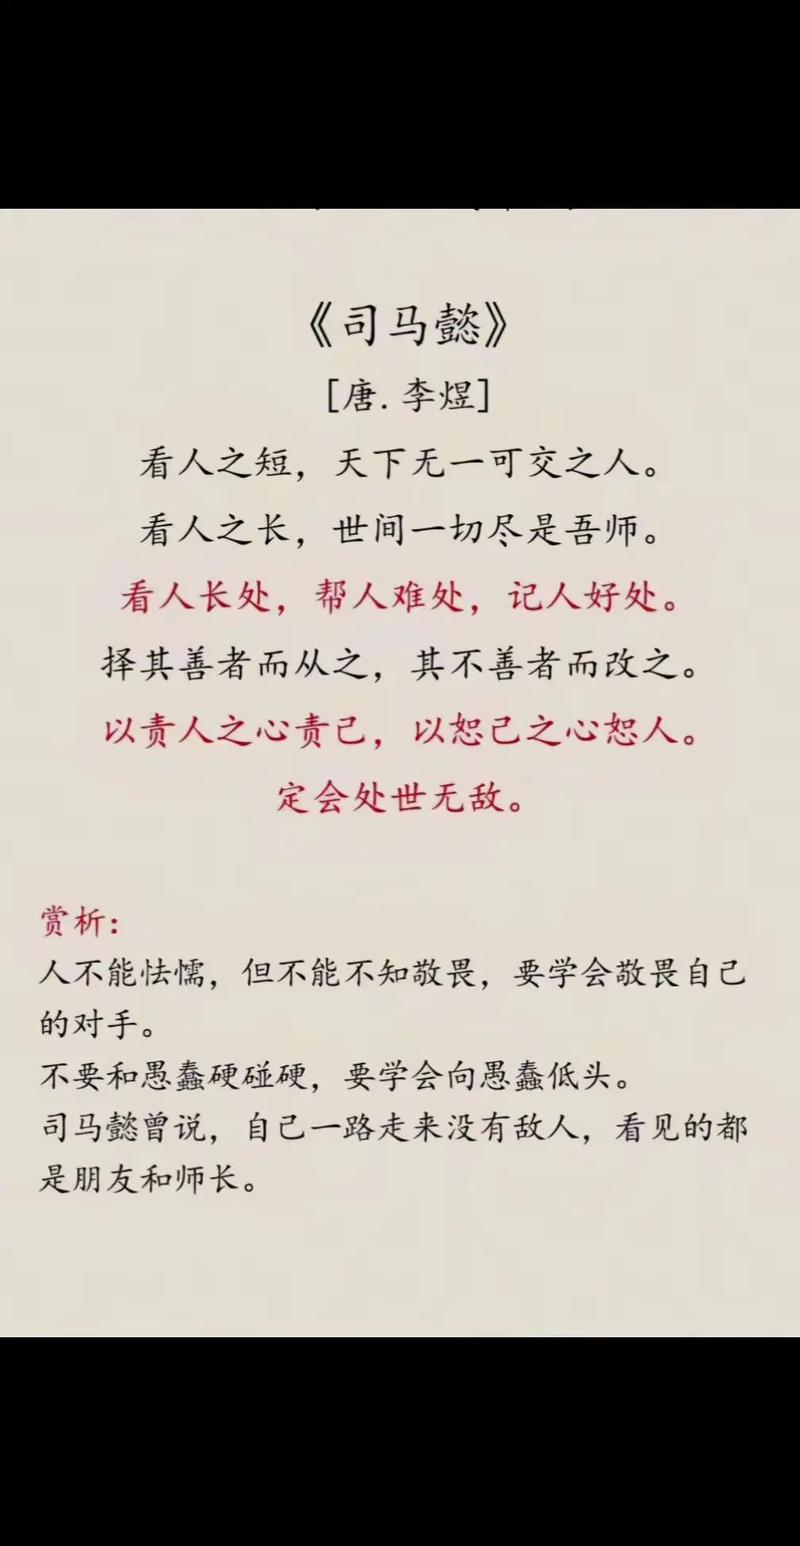 《司马懿》
[唐.李煜]
看人之短，天下无一可交之人。
看人之长，世间一切尽是吾师。
看人长处，帮人难处，记人好处。
择其善者而从之，其不善者而改之。
以责人之心责己，以恕己之心恕人。
定会处世无敌。
赏析：
人不能怯懦，但不能不知敬畏，要学会敬畏自己
的对手。
不要和愚蠢硬碰硬，要学会向愚蠢低头。
司马懿曾说，自己一路走来没有敌人，看见的都
是朋友和师长。